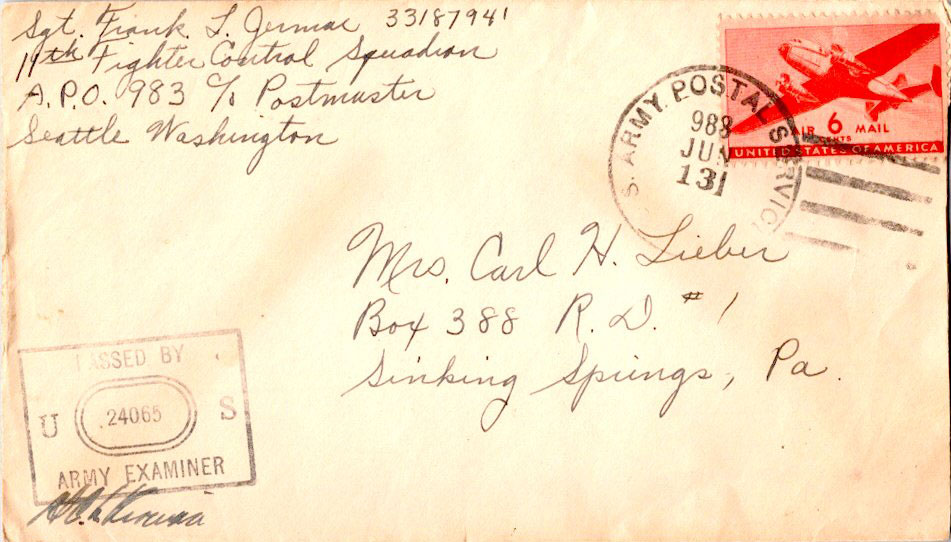 Sgt. Frank L. Jermac 33187941
11th Fighter Control Squadron
A.P.O. 983 c/o Postmaster
Seattle Washington
U.S. ARMY POSTAL SERVICE
988
JUN
131
AIR 6 MAIL
CENTS
UNITED STATES OF AMERICA
Mrs. Carl H. Lieber
Box 388 R.D. #1
Sinking Springs, Pa.
PASSED BY
U 24065 S
ARMY EXAMINER